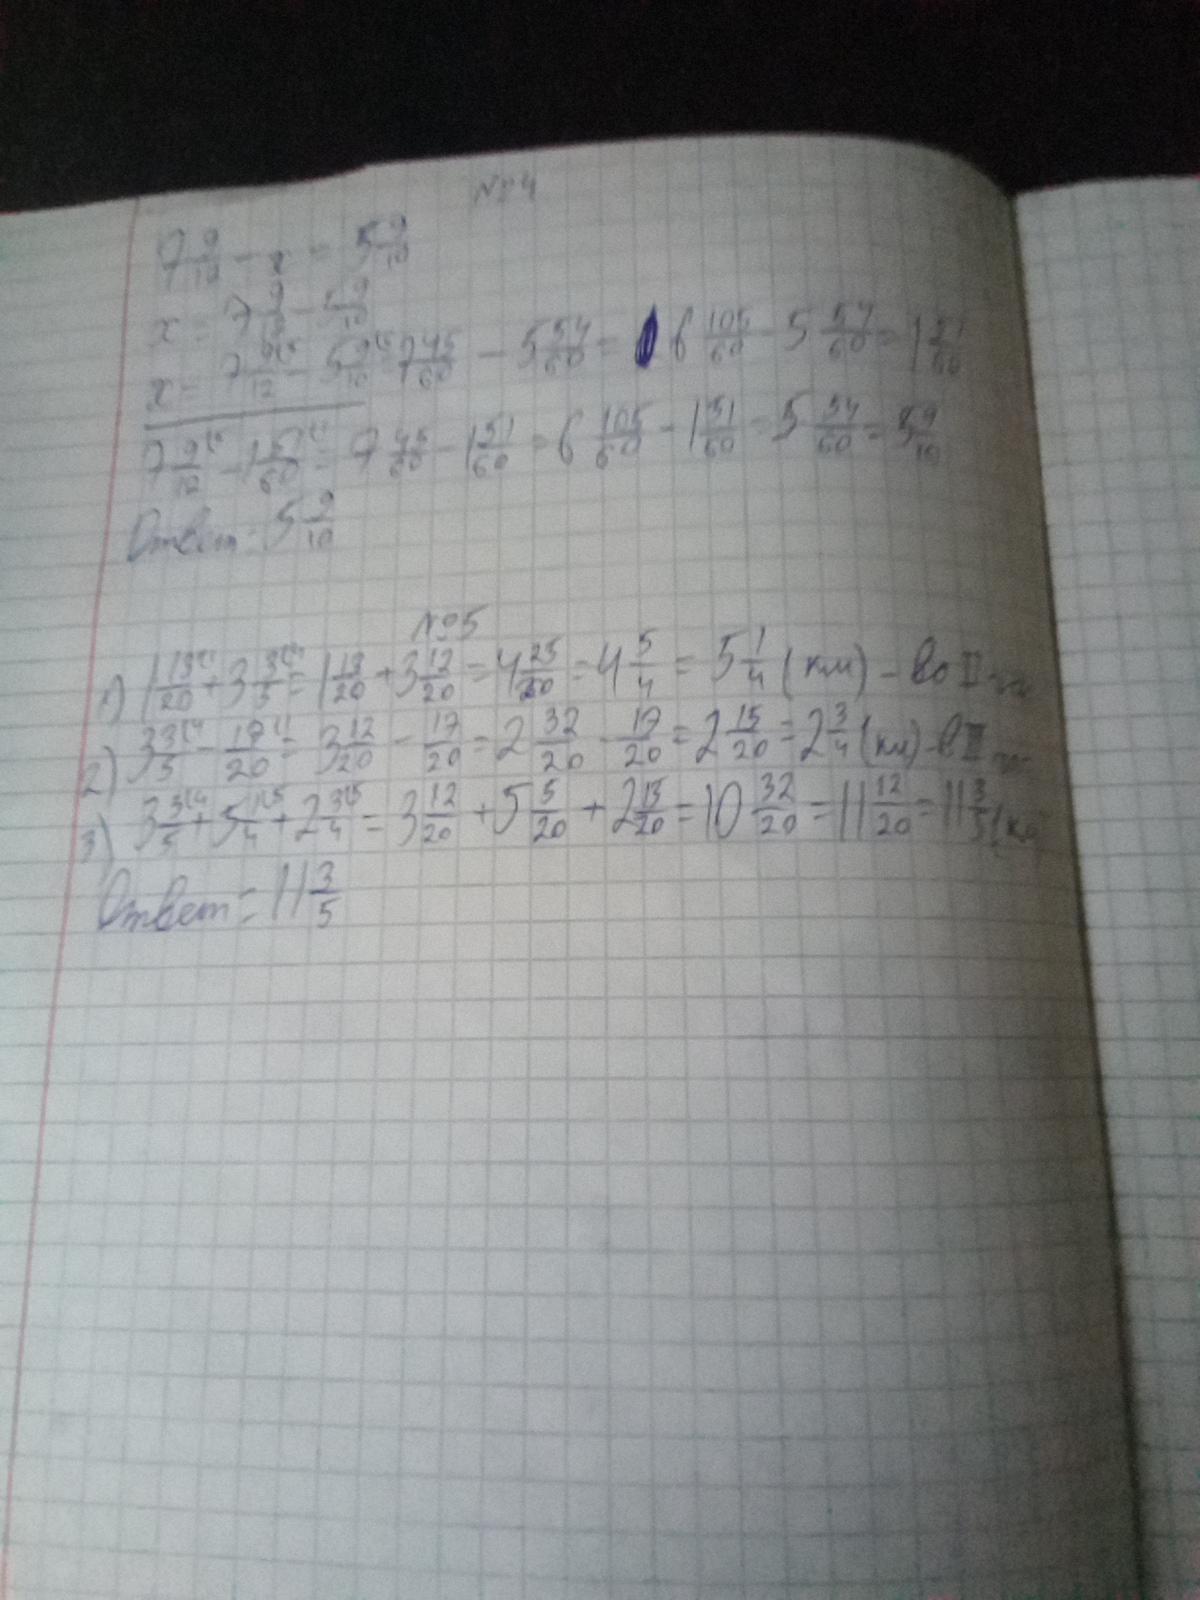 №4
7 9/12 - x = 5 9/10
x = 7 9/12 - 5 9/10
x = 7 9/12 - 5 9/10 = 7 45/60 - 5 54/60 = 6 105/60 - 5 54/60 = 1 51/60
7 9/12 - 1 51/60 = 7 45/60 - 1 51/60 = 6 105/60 - 1 51/60 = 5 54/60 = 5 9/10
Ответ: 5 9/10
№5
1) 1 13/20 + 3 3/5 = 1 13/20 + 3 12/20 = 4 25/20 = 4 5/4 = 5 1/4 (км) - во II
2) 3 3/5 - 17/20 = 3 12/20 - 17/20 = 2 32/20 - 17/20 = 2 15/20 = 2 3/4 (км) - в III
3) 3 3/5 + 5 1/4 + 2 3/4 = 3 12/20 + 5 5/20 + 2 15/20 = 10 32/20 = 11 12/20 = 11 3/5 (км
Ответ: 11 3/5